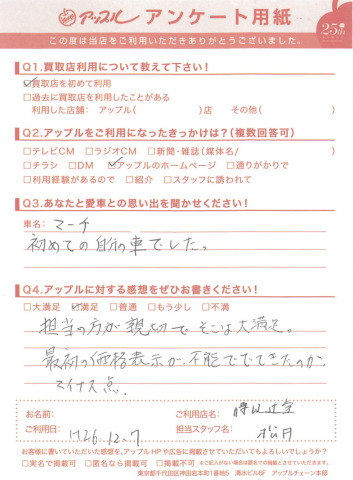 アップル アンケート用紙
25th
この度は当店をご利用いただきありがとうございました。
Q1.買取店利用について教えて下さい!
☑買取店を初めて利用
□過去に買取店を利用したことがある
利用した店舗: アップル( )店 その他( )
Q2.アップルをご利用になったきっかけは?(複数回答可)
□テレビCM □ラジオCM □新聞・雑誌(媒体名/ )
□チラシ □DM ☑アップルのホームページ □通りがかりで
□利用経験があるので □紹介 □スタッフに誘われて
Q3.あなたと愛車との思い出を聞かせください!
車名: マーチ
初めての自分の車でした。
Q4.アップルに対する感想をぜひお書きください!
□大満足 ☑満足 □普通 □もう少し □不満
担当の方が親切でそこは大満足。
最初の価格表示が、不能ででてきたのが、
マイナス点。
お名前: ご利用店名:
ご利用日: H26.12.7 担当スタッフ名: 松田
お客様に書いていただいた感想を、アップルHPや広告に掲載させていただいてもよろしいでしょうか?
□実名で掲載可 □匿名なら掲載可 □掲載不可 ※ご記入がない場合は匿名での掲載とさせていただきます。
東京都千代田区神田岩本町1番地5 清水ビル6F アップルチェーン本部